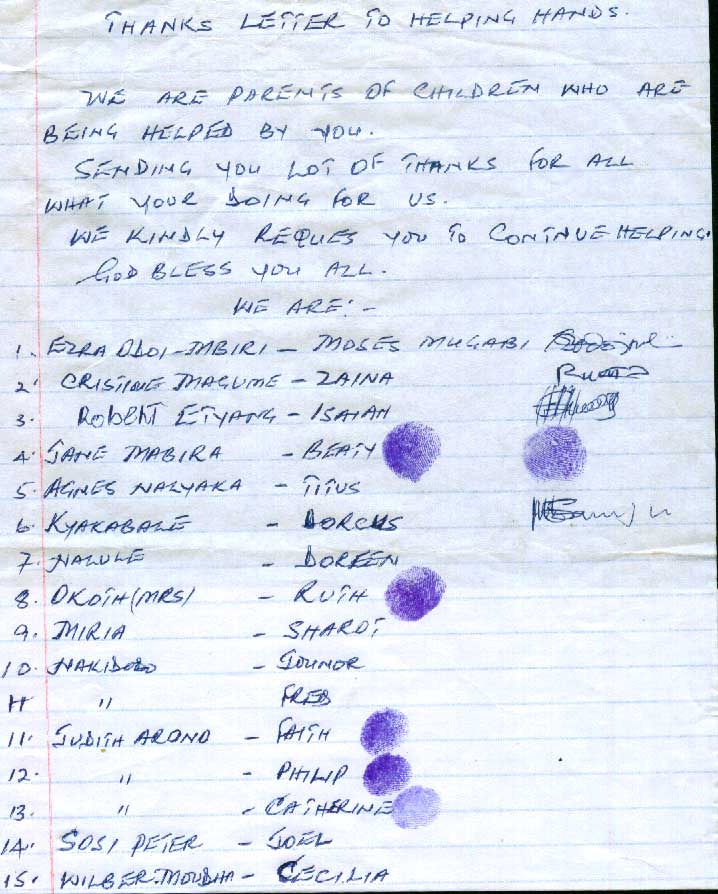 THANKS LETTER TO HELPING HANDS.
WE ARE PARENTS OF CHILDREN WHO ARE
BEING HELPED BY YOU.
SENDING YOU LOT OF THANKS FOR ALL
WHAT YOUR DOING FOR US.
WE KINDLY REQUES YOU TO CONTINUE HELPING.
GOD BLESS YOU ALL.
WE ARE:-
1. EZRA ODOI-MBIRI - MOSES MUGABI
2. CRISTINE MAGUME - ZAINA
3. ROBERT ETYANG - ISAIAH
4. JANE MABIRA - BEATY
5. AGNES NALYAKA - TITUS
6. KYAKABALE - DORCUS
7. NALULE - DOREEN
8. OKOTH (MRS) - RUTH
9. MIRIA - SHAROT
10. - JOUNOR
11 " FRED
11. JUDITH ARONO - FAITH
12. " - PHILIP
13. " - CATHERINE
14. SOSI PETER - JOEL
15. WILBER - CECILIA